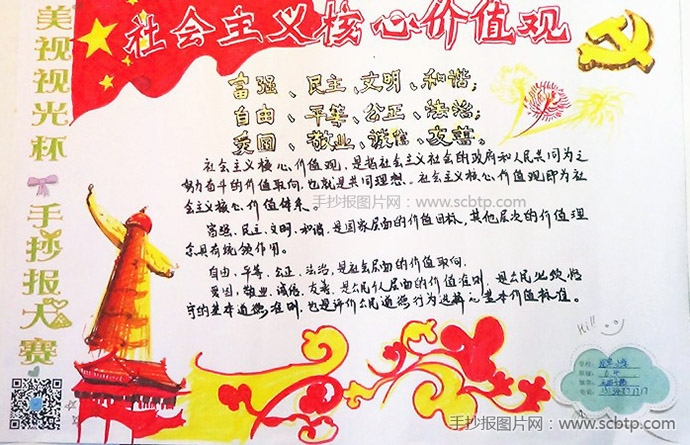 社会主义核心价值观
美视视光杯
手抄报大赛
富强、民主、文明、和谐;
自由、平等、公正、法治;
爱国、敬业、诚信、友善。
社会主义核心价值观,是指社会主义社会的政府和人民共同为之
努力奋斗的价值取向,也就是共同理想。社会主义核心价值观即为社
会主义核心价值体系。
手抄报图片网:www.scbtp.com
富强、民主、文明、和谐,是国家层面的价值目标,其他层次的价值理
念具有统领作用。
自由、平等、公正、法治,是社会层面的价值取向。
爱国、敬业、诚信、友善,是公民个人层面的价值准则,是公民必须恪
守的基本道德准则,也是评价公民道德行为选择的基本价值标准。
Hi!!
学校:
班级:
姓名:
电话:
手抄报图片网:www.scbtp.com